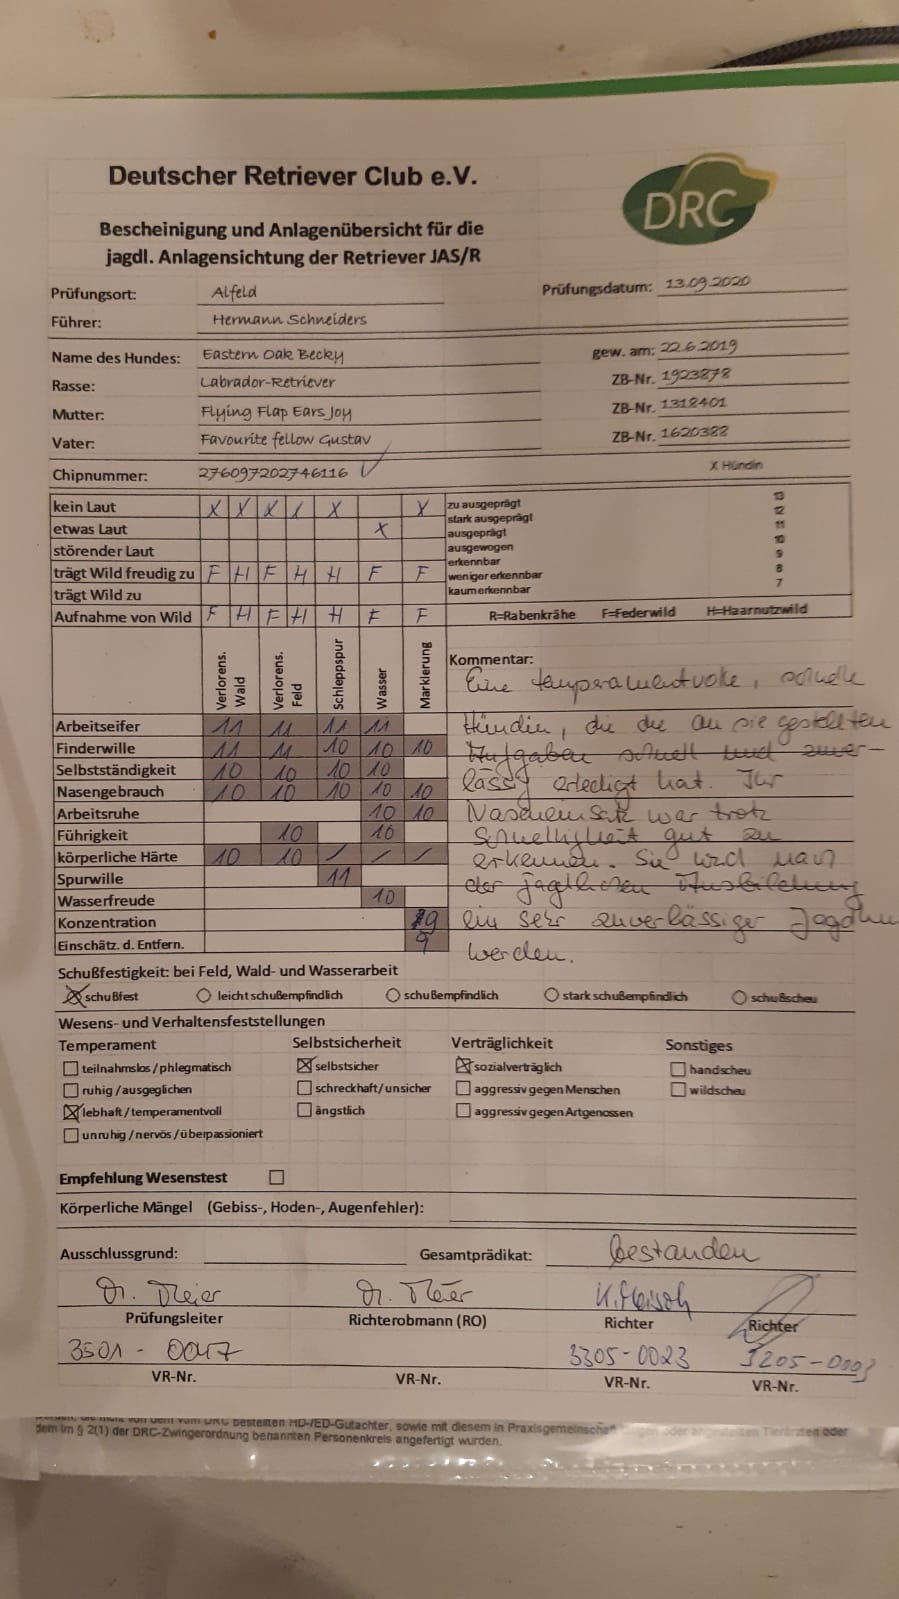 Deutscher Retriever Club e.V.
DRC
Bescheinigung und Anlagenübersicht für die
jagdl. Anlagensichtung der Retriever JAS/R
Prüfungsort: Alfeld Prüfungsdatum: 13.09.2020
Führer: Hermann Schneiders
Name des Hundes: Eastern Oak Becky gew. am: 22.6.2019
Rasse: Labrador-Retriever ZB-Nr. 1923878
Mutter: Flying Flap Ears Joy ZB-Nr. 1318401
Vater: Favourite fellow Gustav ZB-Nr. 1620388
Chipnummer: 276097202746116 ✓ X Hündin
kein Laut X X X X X X zu ausgeprägt 13
stark ausgeprägt 12
etwas Laut X ausgeprägt 11
störender Laut ausgewogen 10
erkennbar 9
trägt Wild freudig zu F H F H H F F weniger erkennbar 8
trägt Wild zu kaum erkennbar 7
Aufnahme von Wild F H F H H F F R=Rabenkrähe F=Federwild H=Haarnutzwild
Verlorens. Wald Verlorens. Feld Schleppspur Wasser Markierung
Kommentar:
Eine temperamentvolle, schnelle
Arbeitseifer 11 11 11 11 Hündin, die die an sie gestellten
Finderwille 11 11 10 10 10 Aufgaben schnell und zuver-
Selbstständigkeit 10 10 10 10 lässig erledigt hat. Ihr
Nasengebrauch 10 10 10 10 10
Arbeitsruhe 10 10 Naseneinsatz war trotz
Führigkeit 10 10 Schnelligkeit gut zu
körperliche Härte 10 10 / / / erkennen. Sie wird nach
Spurwille 11 der jagdlichen Ausbildung
Wasserfreude 10
Konzentration 9 ein sehr zuverlässiger
Einschätz. d. Entfern. 9 werden.
Schußfestigkeit: bei Feld, Wald- und Wasserarbeit
X schußfest leicht schußempfindlich schußempfindlich stark schußempfindlich schußscheu
Wesens- und Verhaltensfeststellungen
Temperament Selbstsicherheit Verträglichkeit Sonstiges
teilnahmslos/phlegmatisch X selbstsicher X sozialverträglich handscheu
ruhig/ausgeglichen schreckhaft/unsicher aggressiv gegen Menschen wildscheu
X lebhaft/temperamentvoll ängstlich aggressiv gegen Artgenossen
unruhig/nervös/überpassioniert
Empfehlung Wesenstest
Körperliche Mängel (Gebiss-, Hoden-, Augenfehler):
Ausschlussgrund: Gesamtprädikat: bestanden
Dr. Meier Dr. Meier
Prüfungsleiter Richterobmann (RO) Richter Richter
3501-0047 3305-0023
VR-Nr. VR-Nr. VR-Nr. VR-Nr.
nicht von dem vom DRC bestellten HD-/ED-Gutachter, sowie mit diesem in Praxisgemeinschaft oder Tierärzten oder
dem im § 2(1) der DRC-Zwingerordnung benannten Personenkreis angefertigt wurden.